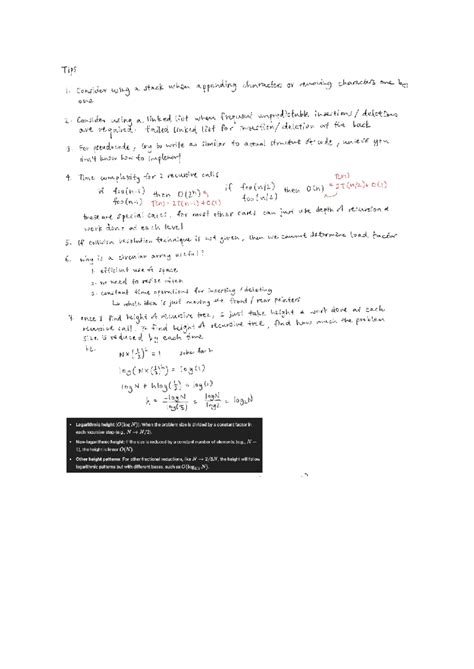 Tips
1. Consider using a stack when appending characters or removing characters one by
one
2. Consider using a linked list when frequent unpredictable insertions / deletions
are required. Tailed linked list for insertion / deletion at the back
3. For pseudocode, try to write as similar to actual structure of code, unless you
don't know how to implement
4. Time complexity for 2 recursive calls
if foo(n-1) then O(2^n) if foo(n/2) then O(n) T(n) = 2T(n/2) + O(1)
foo(n-1) T(n) = 2T(n-1) + O(1) foo(n/2)
these are special cases. for most other cases can just use depth of recursion &
work done at each level
5. If collision resolution technique is not given, then we cannot determine load factor
6. why is a circular array useful?
1. efficient use of space
2. no need to resize often
3. constant time operations for inserting / deleting
↳ whole idea is just moving the front / rear pointers
7. once I find height of recursive tree, I just take height × work done at each
recursive call. To find height of recursive tree, find how much the problem
size is reduced by each time
N × (1/2)^h = 1 solve for h
log(N × (1/2)^h) = log(1)
log N + h log(1/2) = log(1)
h = -log N / log(1/2) = log N / log 2 = log₂N
• Logarithmic height (O(log N)): When the problem size is divided by a constant factor in
each recursive step (e.g., N → N/2).
• Non-logarithmic height: If the size is reduced by a constant number of elements (e.g., N −
1), the height is linear O(N).
• Other height patterns: For other fractional reductions, like N → 2/3N, the height will follow
logarithmic patterns but with different bases, such as